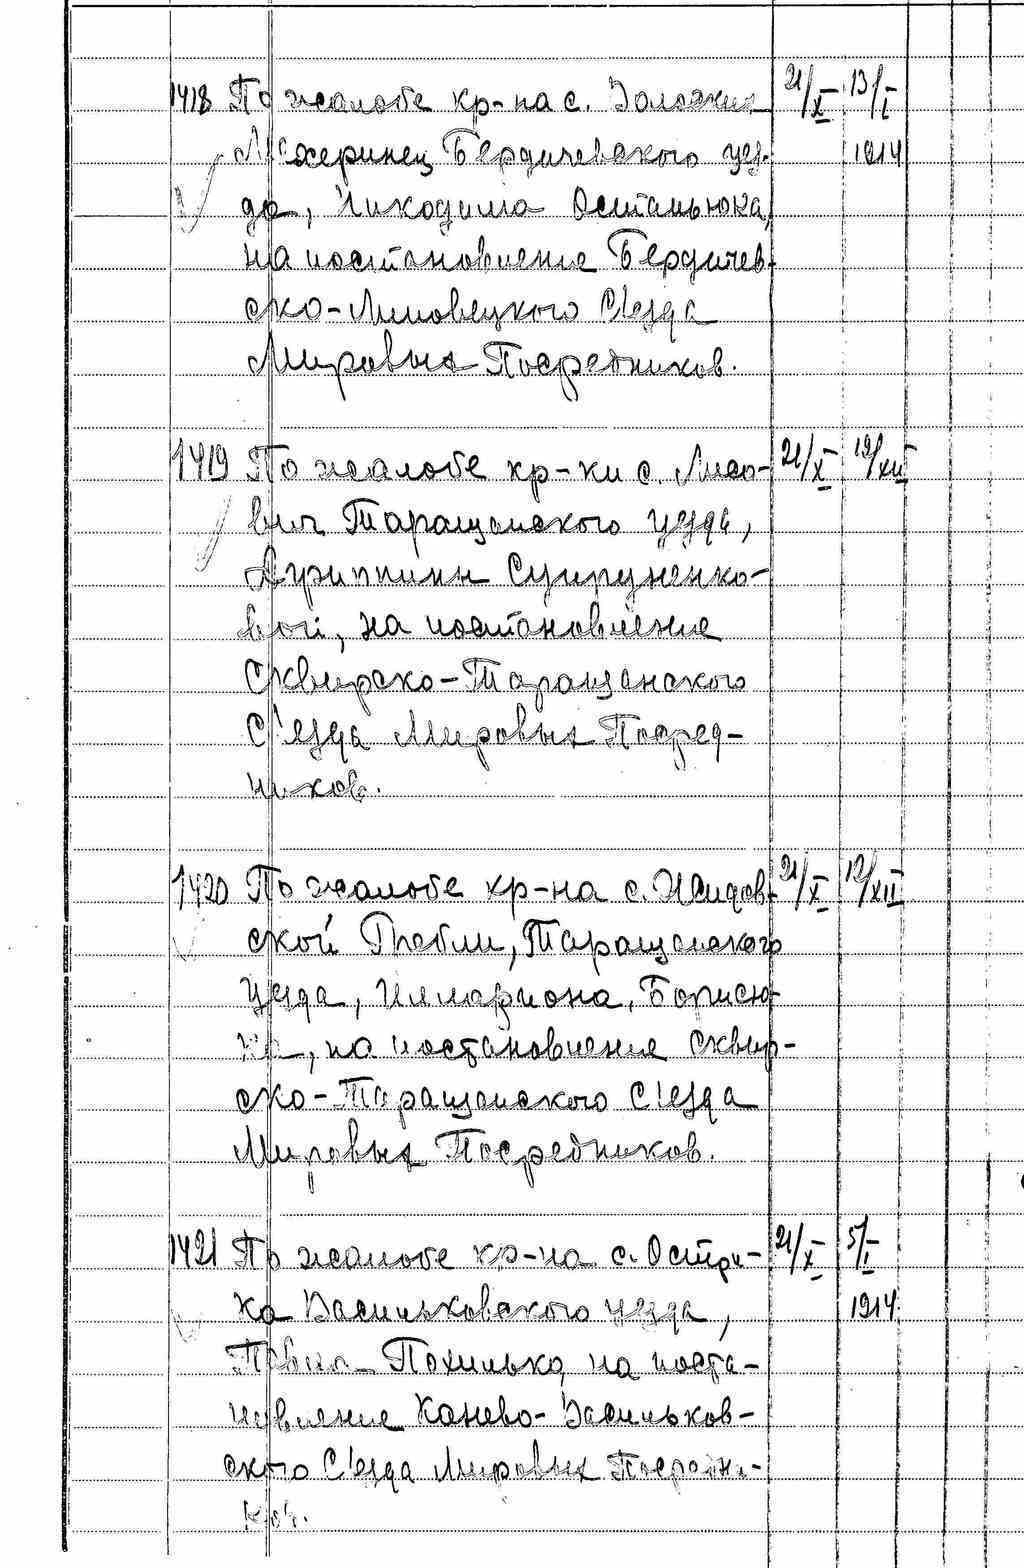 1418 По жалобе кр-на с. 21/X 13/I
Махеринец Бердичевского уез- 1914
да, Никодима Остапьюка,
на постановление Бердичев-
ско-Липовецкого С'езда
Мировых Посредников.
1419 По жалобе кр-ки с. Лисо- 21/X 19/XII
вич Таращанского уезда,
Агриппины Супруненко-
вой, на постановление
Сквирско-Таращанского
С'езда Мировых Посред-
ников.
1420 По жалобе кр-на с. Жидов- 21/X 12/XII
ской Гребли, Таращанского
уезда, Иллариона, Борисю-
ка, на постановление Сквир-
ско-Таращанского С'езда
Мировых Посредников.
1421 По жалобе кр-на с. Остри- 21/X 5/I
ка Васильковского уезда, 1914
Павла Похилько, на поста-
новление Канево-Васильков-
ского С'езда Мировых Посредни-
ков.